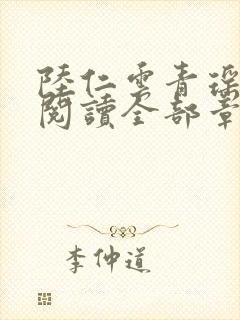 陸仁雲青瑶
閱讀全部章
李仲道